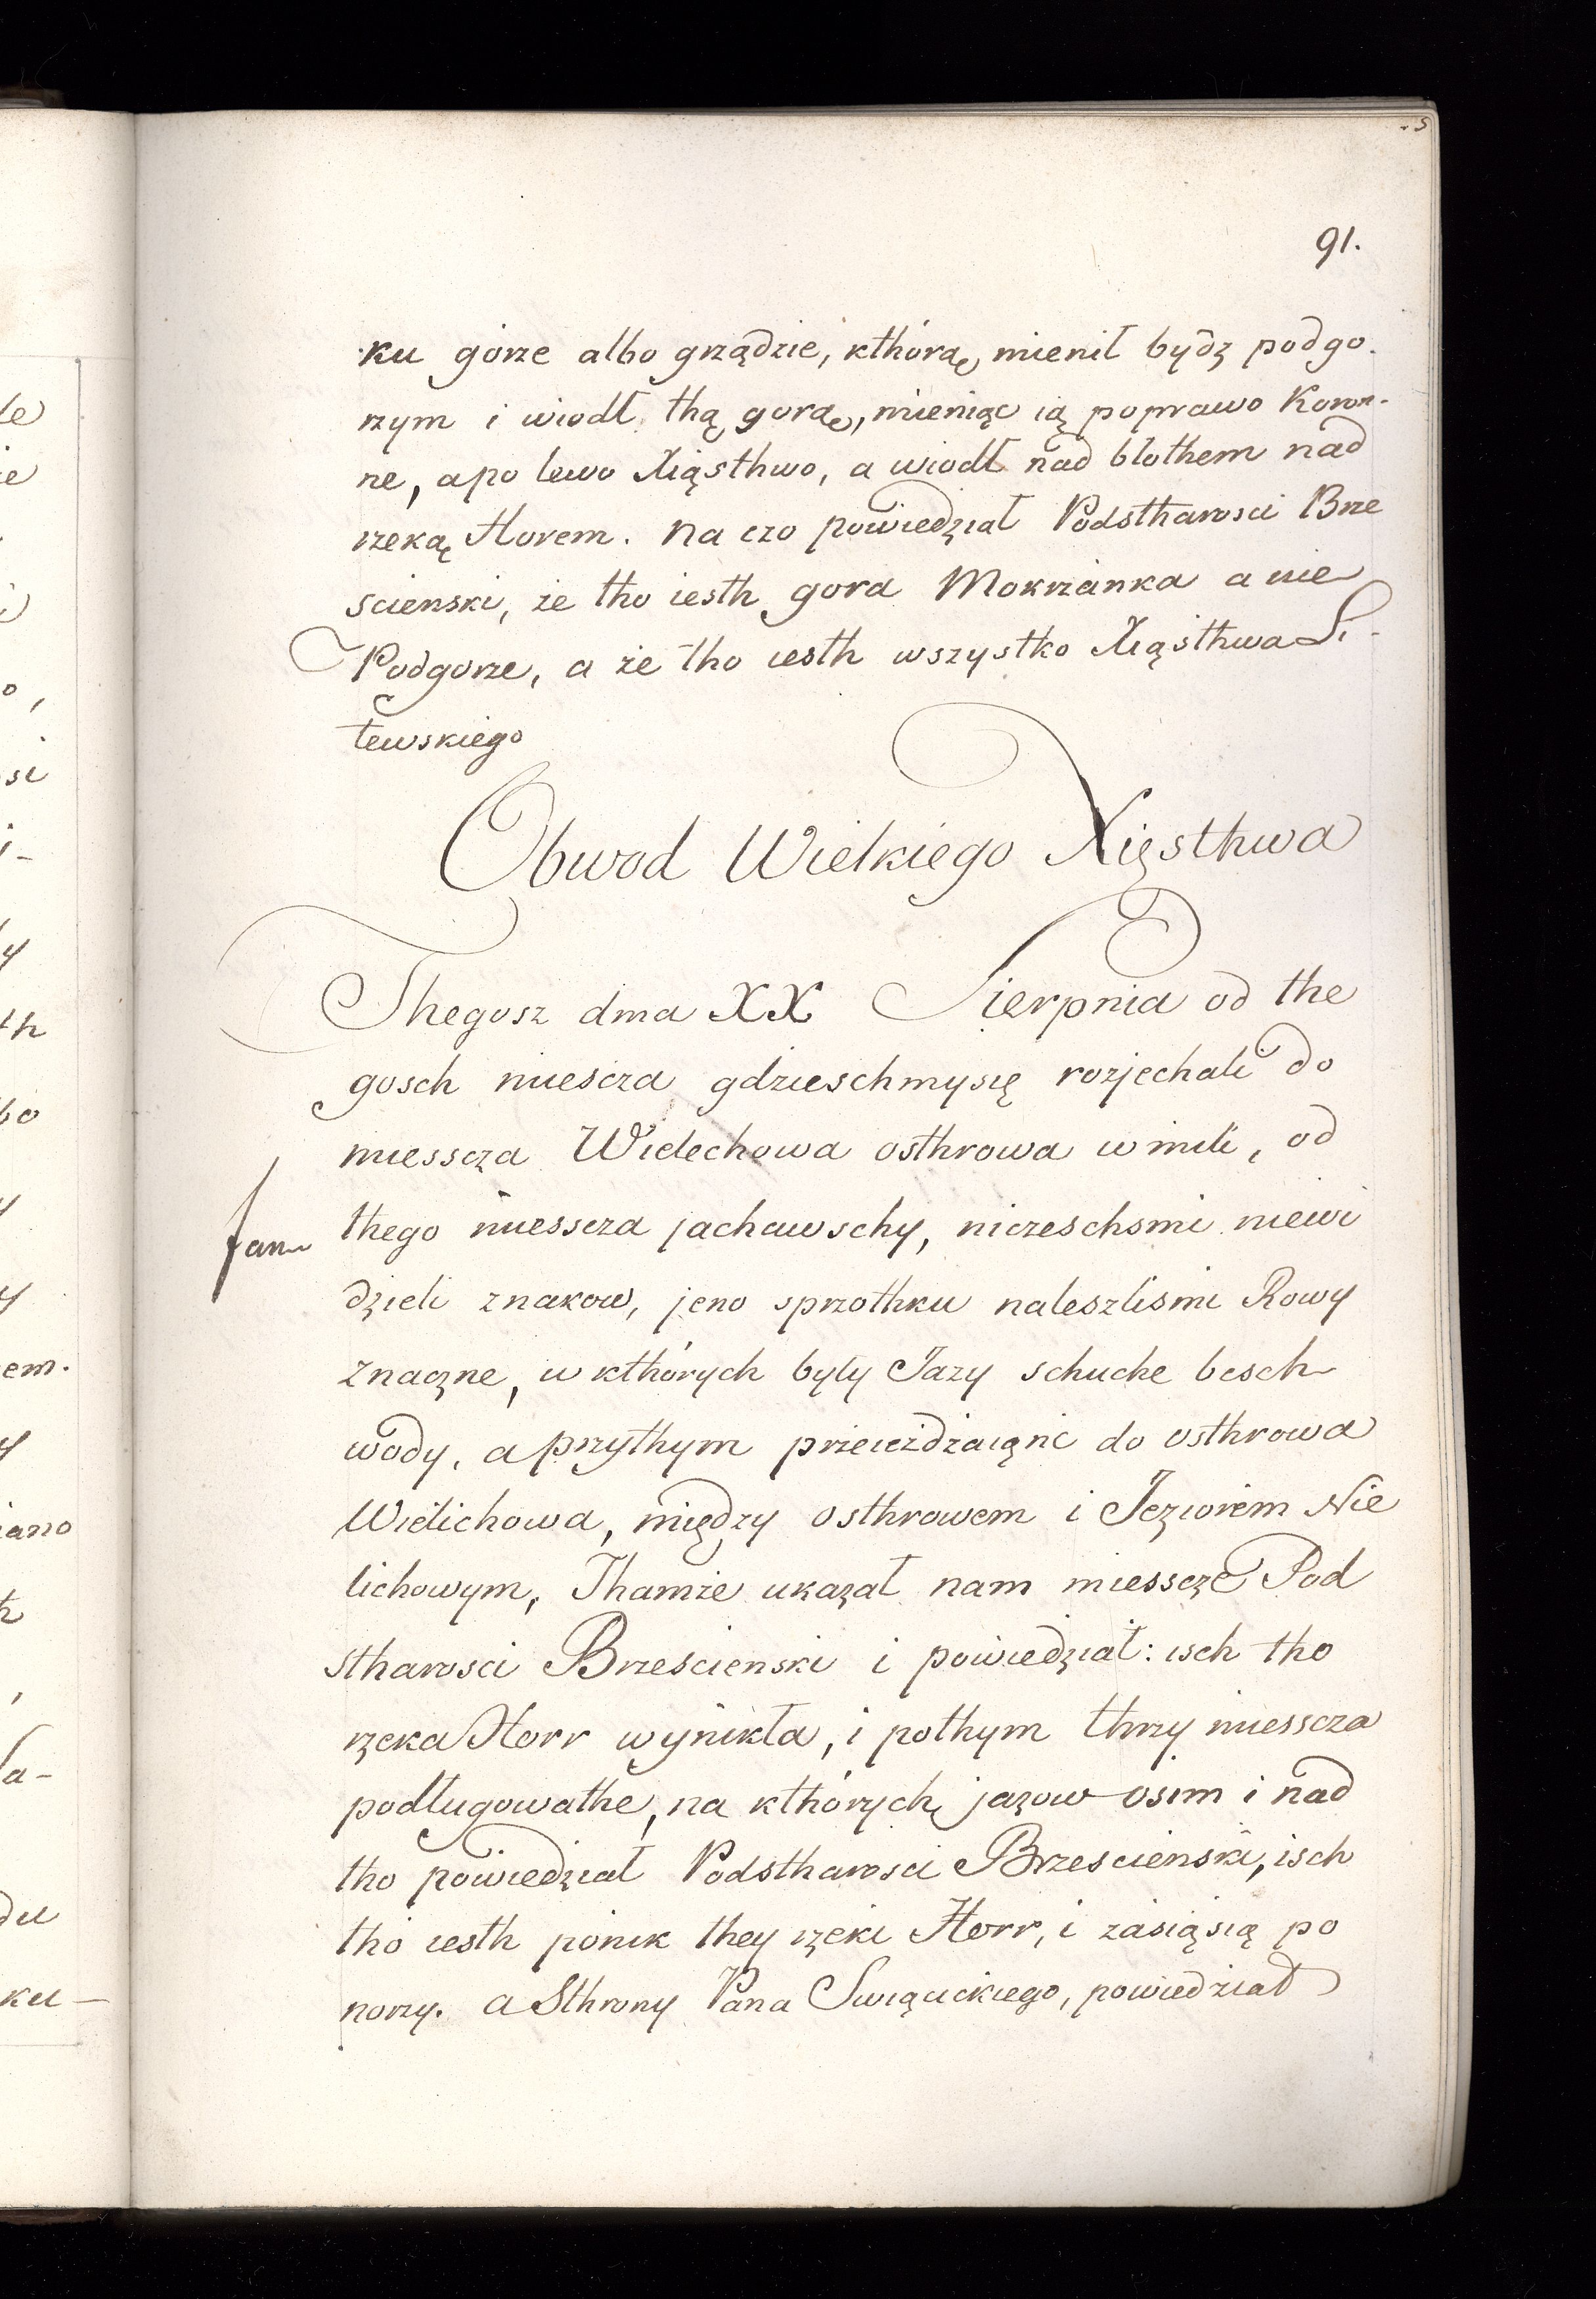 91.
ku górze albo grządzie, kthórą mienił bydz podgo-
rzym i wiodł thą gorą, mieniąc ią poprawo Koron-
ne, apo lewo Xiąsthwo, a wiodł nad błothem nad
rzeką Horem. Na czo powiedział Podstharosci Brze
scienski, że tho iesth gora Mokrzanka a nie
Podgorze, a że tho iesth wszystko Xiąsthwa Li-
tewskiego
Obwod Wielkiego Xięsthwa
Thegosz dnia XX Sierpnia od the
gosch miescza gdzieschmysię rozjechali do
miesscza Wielechowa osthrowa w mili, od
thego miesscza jachawschy, niczeschsmi niewi
dzieli znakow, jeno sprzothku naleszlismi Rowy
znaczne, w kthórych były Jazy schuche besch
wody, a przythym przeieżdżaiąnc do osthrowa
Wielichowa, między osthrowem i Jeziorem Nie
lichowym, Thamże ukazał nam miescze Pod
stharosci Brzescienski i powiedział: isch tho
rzeka Horr wynikła, i pothym thrzy miesscza
podługowathe, na kthórych jazow osim i nad
tho powiedział Podstharosci Brzescienski, isch
tho iesth ponik they rzeki Horr, i zasiąsią po
norzy. a Sthrony Pana Swiącickiego, powiedział